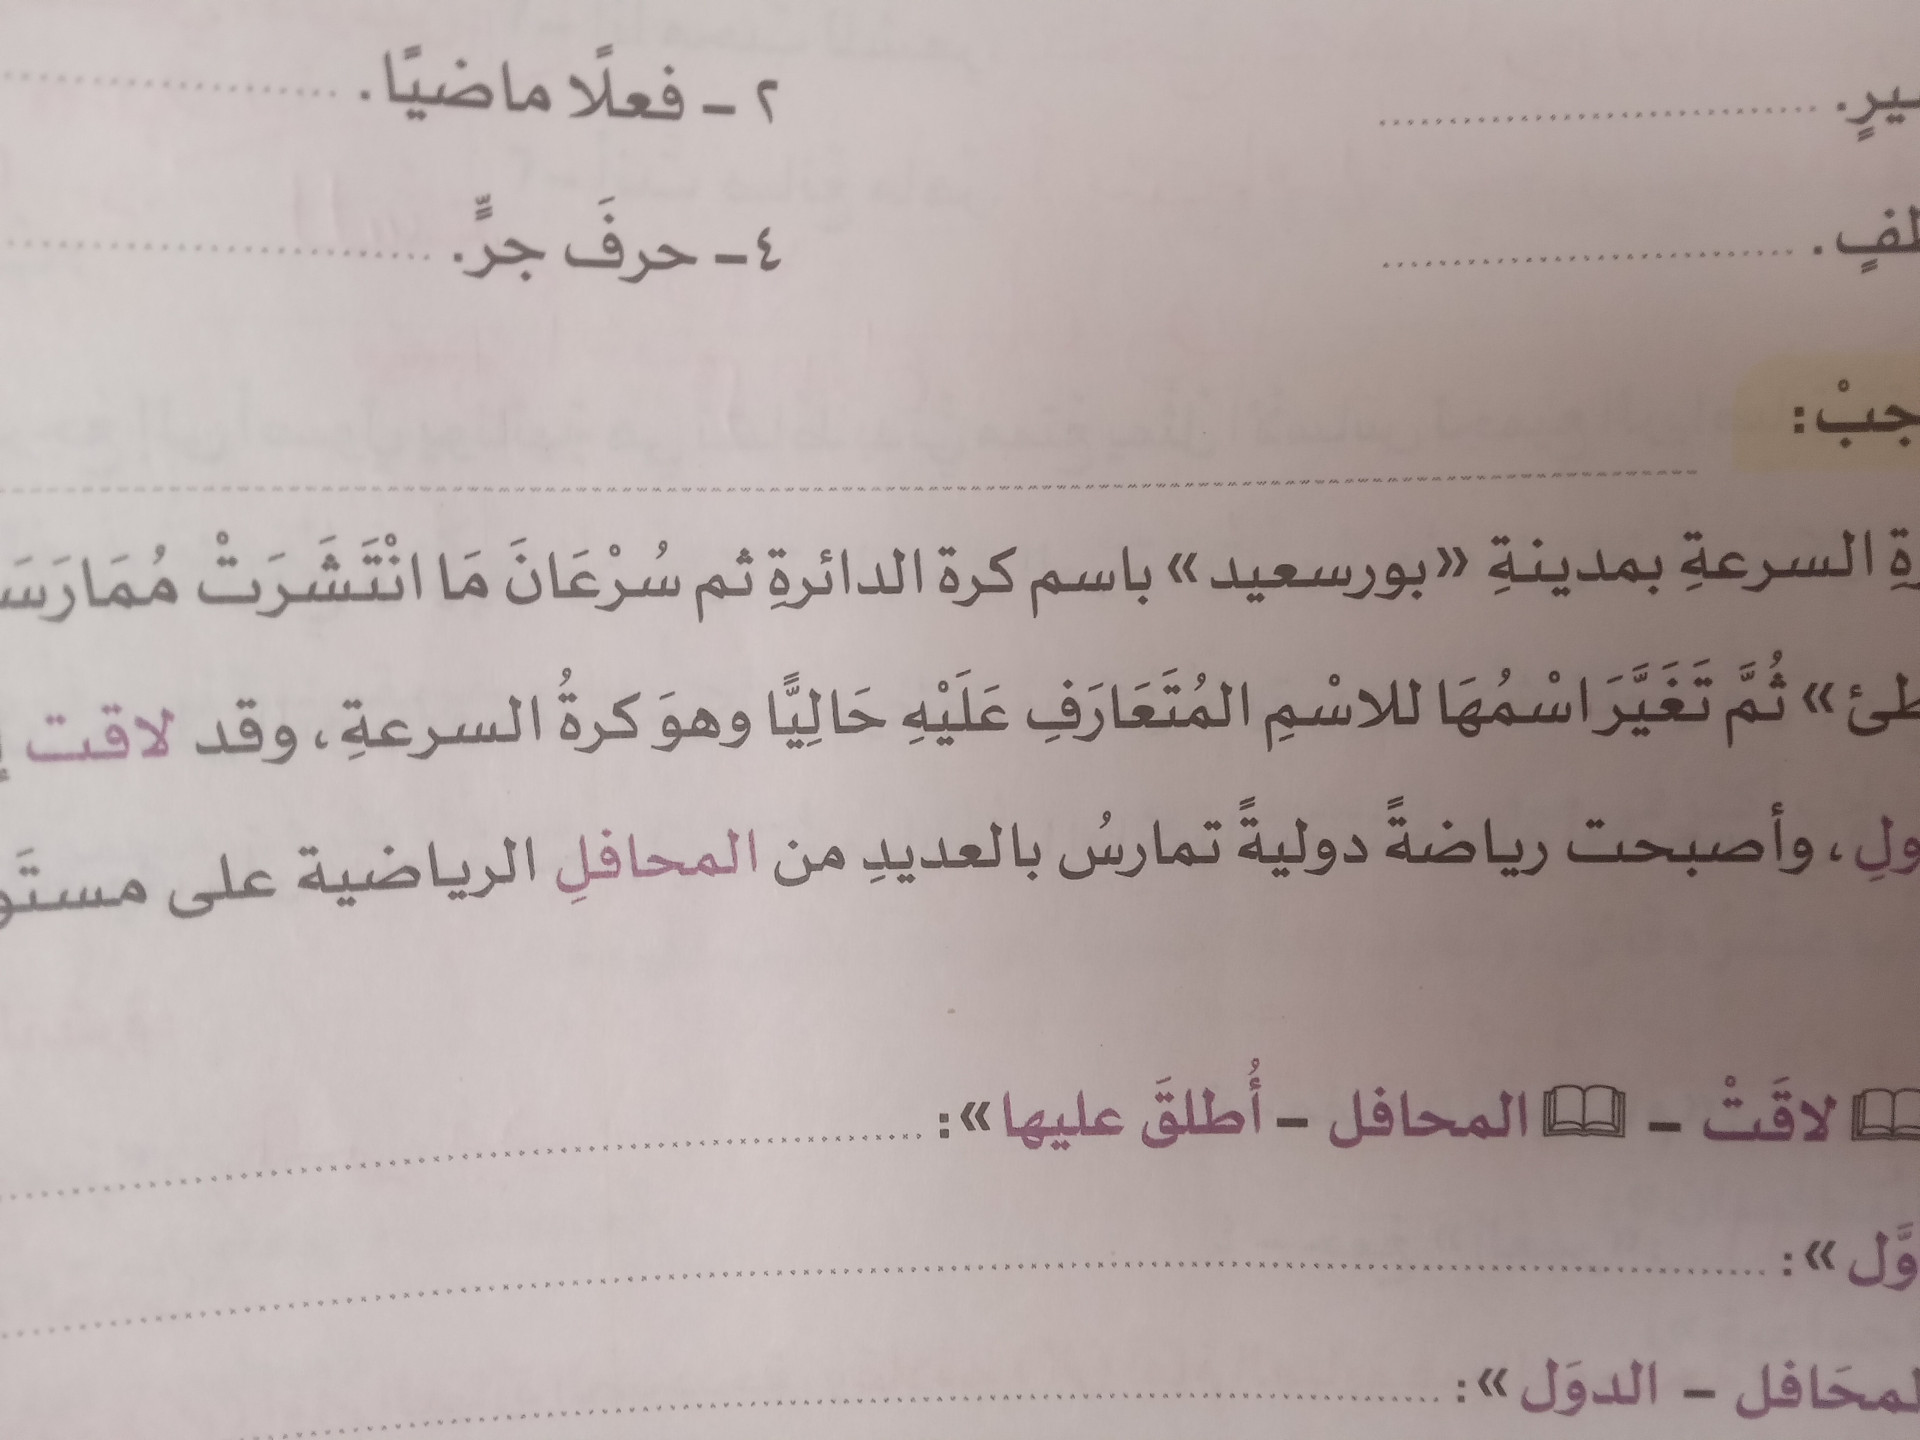 ٢ - فعلًا ماضيًا.
٤ - حرفَ جرٍّ.
السرعةِ بمدينةِ «بورسعيد» باسم كرة الدائرةِ ثم سُرْعَانَ مَا انْتَشَرَتْ
ثُمَّ تَغَيَّرَ اسْمُهَا للاسْمِ المُتَعَارَفِ عَلَيْهِ حَالِيًّا وهوَ كرةُ السرعةِ، وقد لاقت
، وأصبحت رياضةً دوليةً تمارسُ بالعديدِ من المحافلِ الرياضية على
لاقَتْ - المحافل - أُطلقَ عليها»:
- الدوَل»: